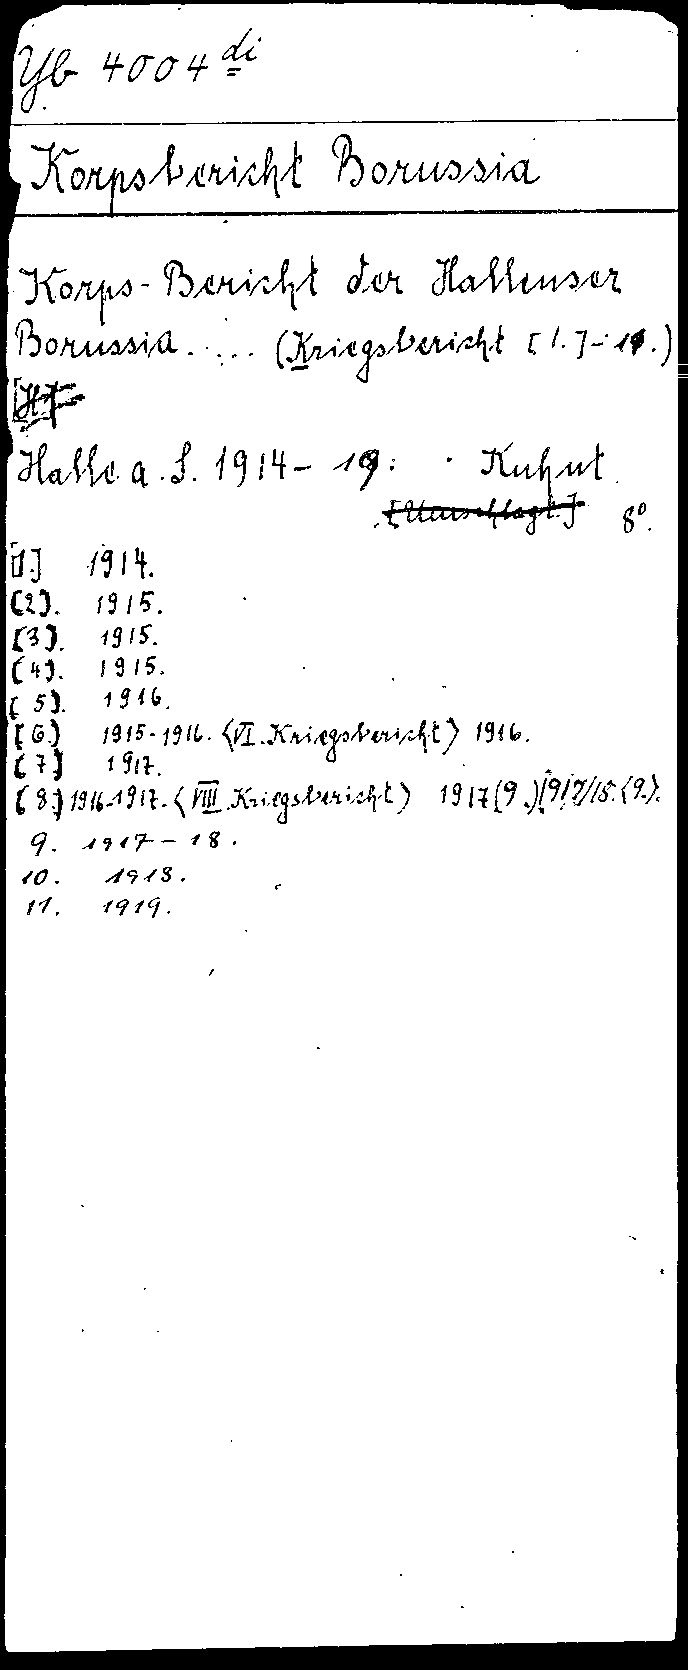 Yb 4004 di
Korpsbericht Borussia
Korps-Bericht der Hallenser
Borussia. ... (Kriegsbericht [1.]-11.)
Halle a. S. 1914-19: Kuhnt
[Umschlagt.] 8°.
[1.] 1914.
[2]. 1915.
[3]. 1915.
[4]. 1915.
[5]. 1916.
[6.] 1915-1916. <VI. Kriegsbericht> 1916.
[7.] 1917.
[8.] 1916-1917. <VIII. Kriegsbericht> 1917 (9.) [1917/18. <9.>.
9. 1917-18.
10. 1918.
11. 1919.